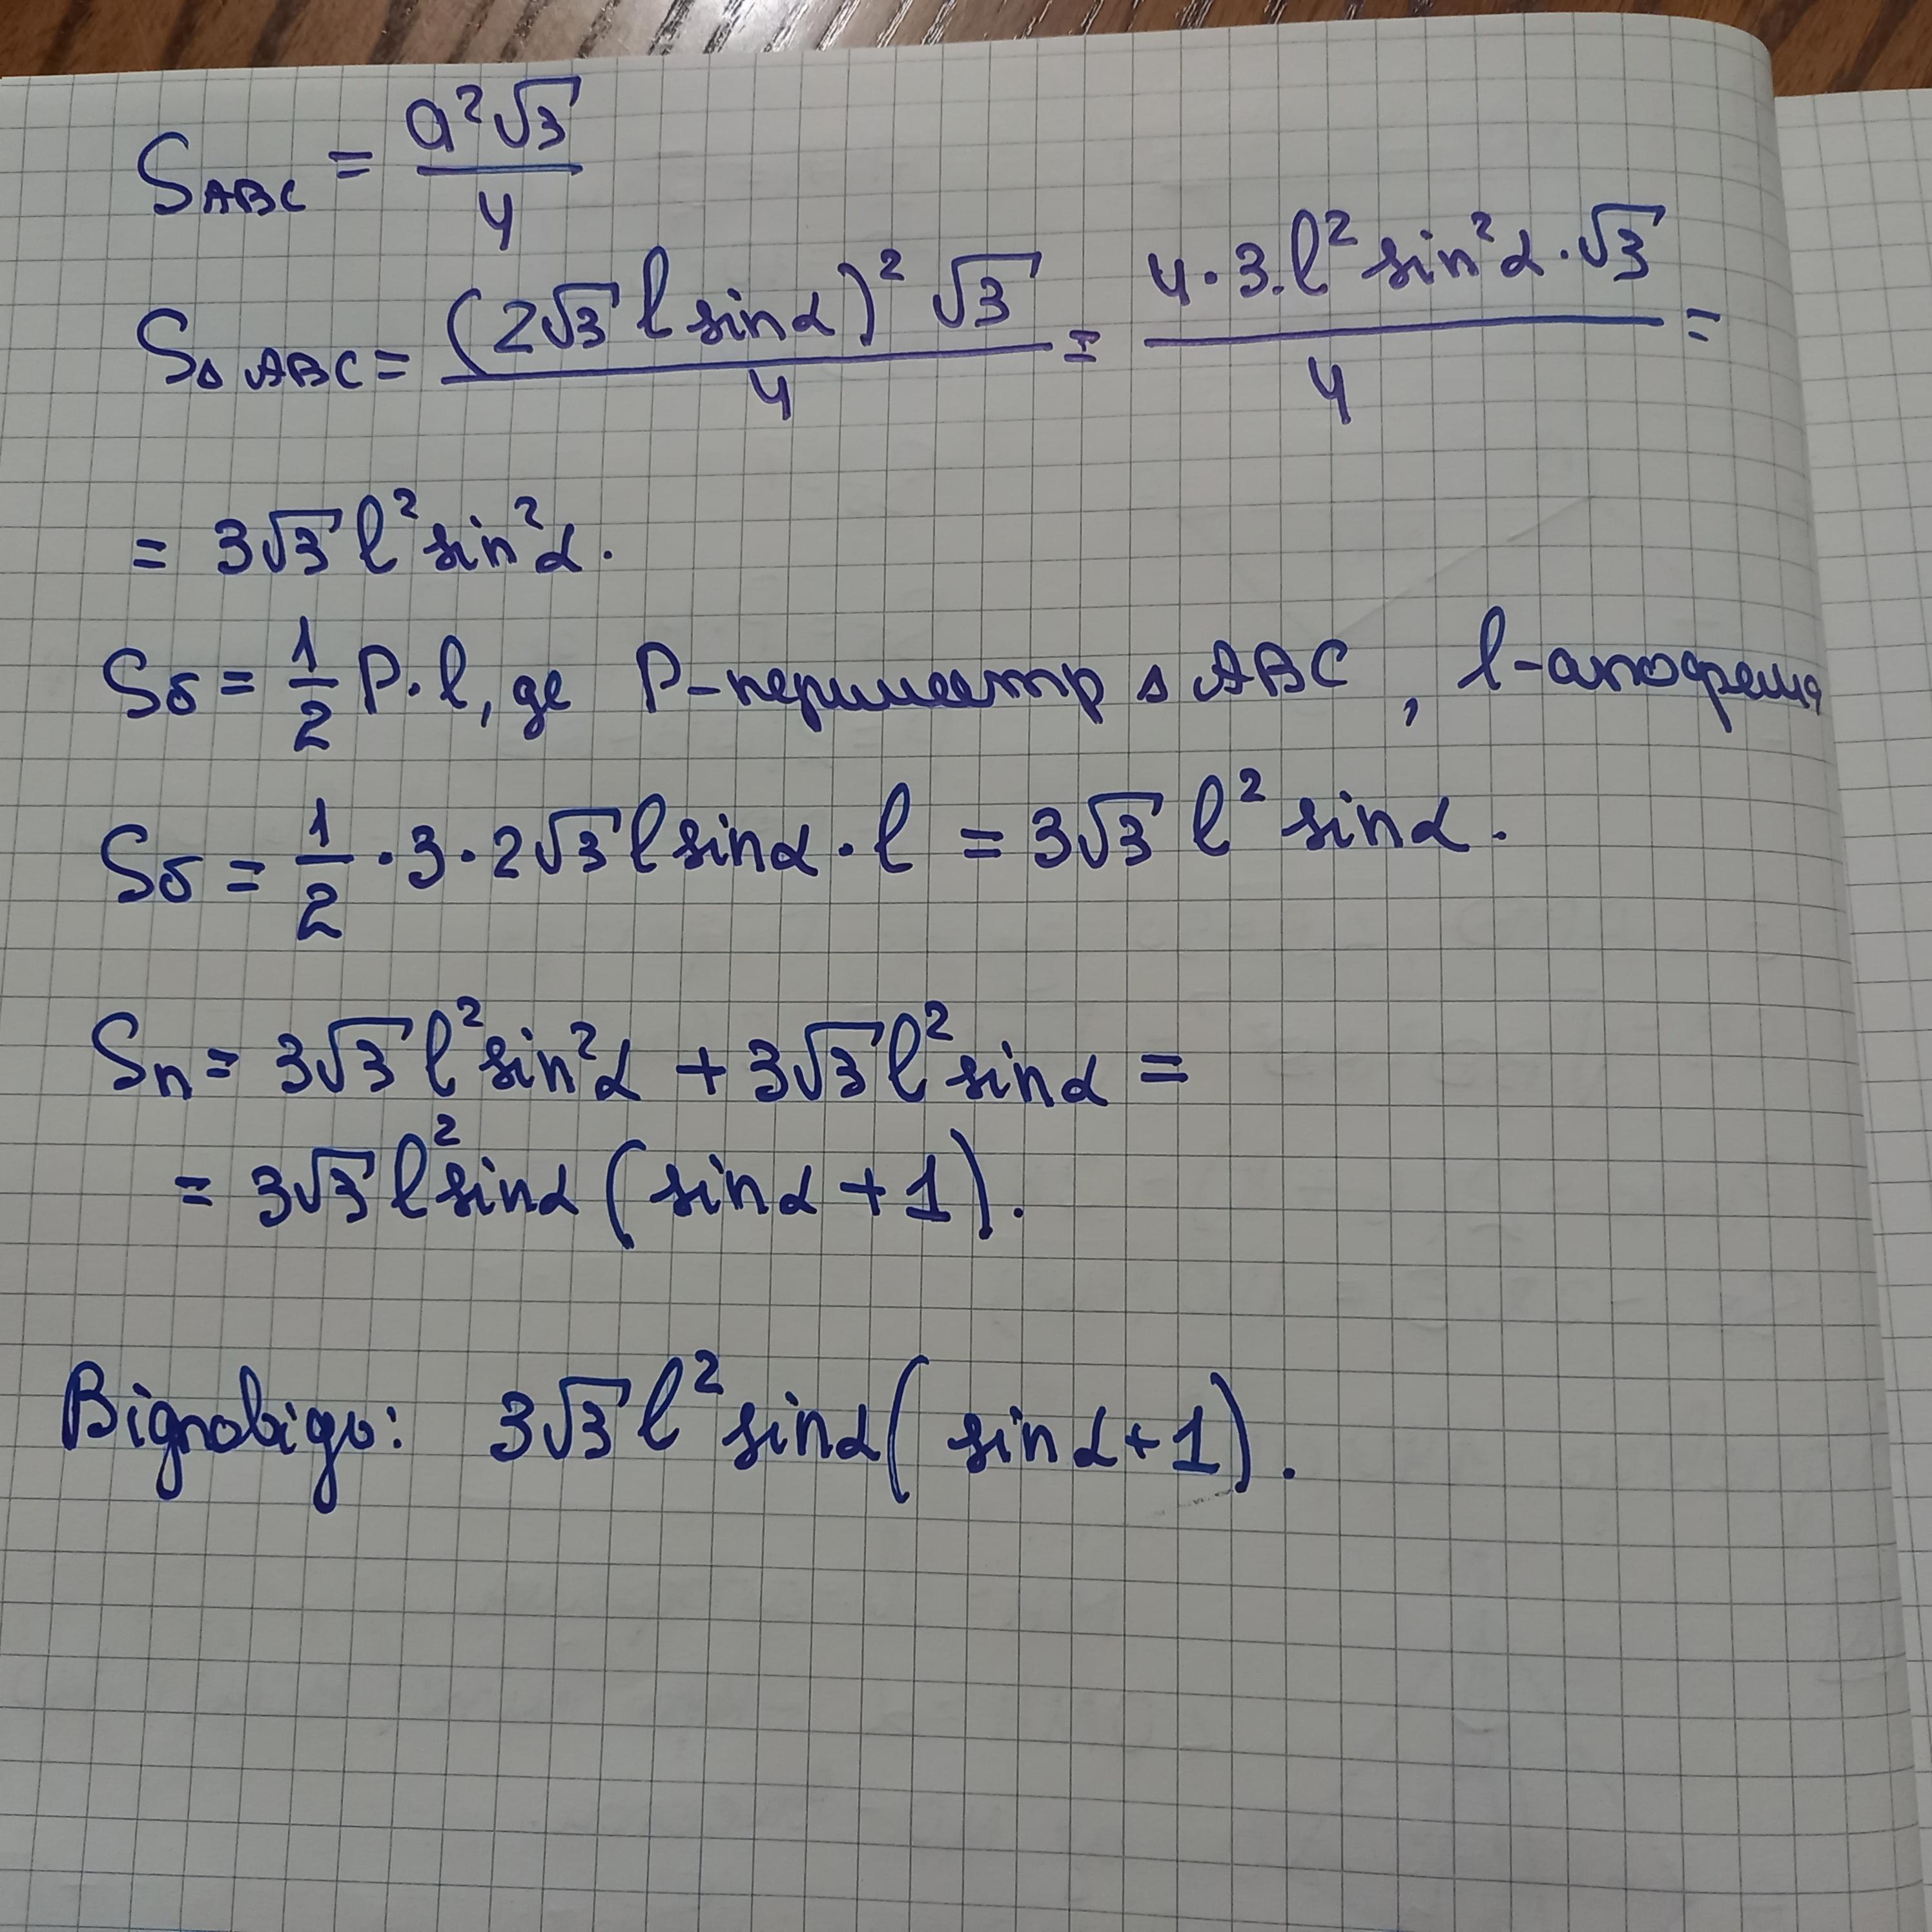 S_ABC = a²√3/4
S_Δ ABC = (2√3 l sinα)² √3/4 = 4·3·l² sin²α·√3/4 =
= 3√3 l² sin²α.
Sб = 1/2 P·l, де P-периметр Δ ABC, l-апофема
Sб = 1/2 · 3 · 2√3 l sinα · l = 3√3 l² sinα.
Sп = 3√3 l² sin²α + 3√3 l² sinα =
= 3√3 l² sinα (sinα + 1).
Відповідь: 3√3 l² sinα (sinα + 1).